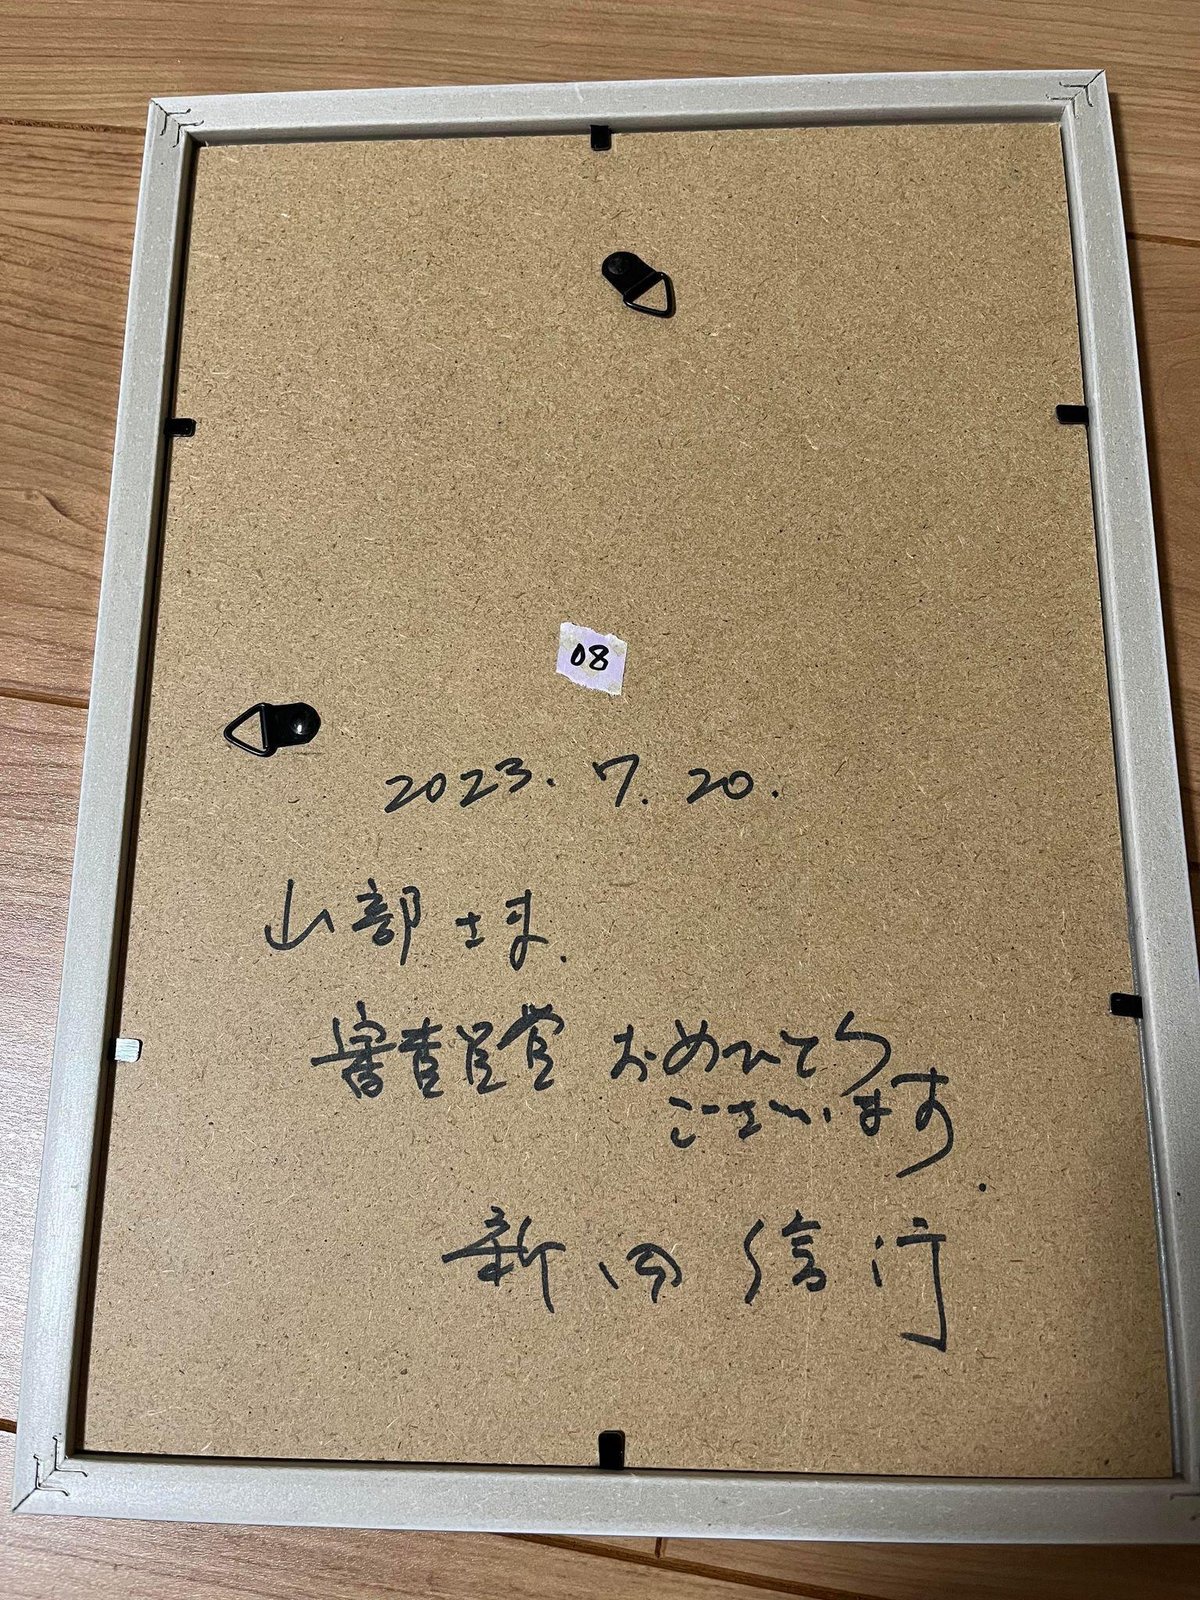 08
2023. 7. 20.
山部さま.
審査員賞 おめでとう
ございます.
新田 信行